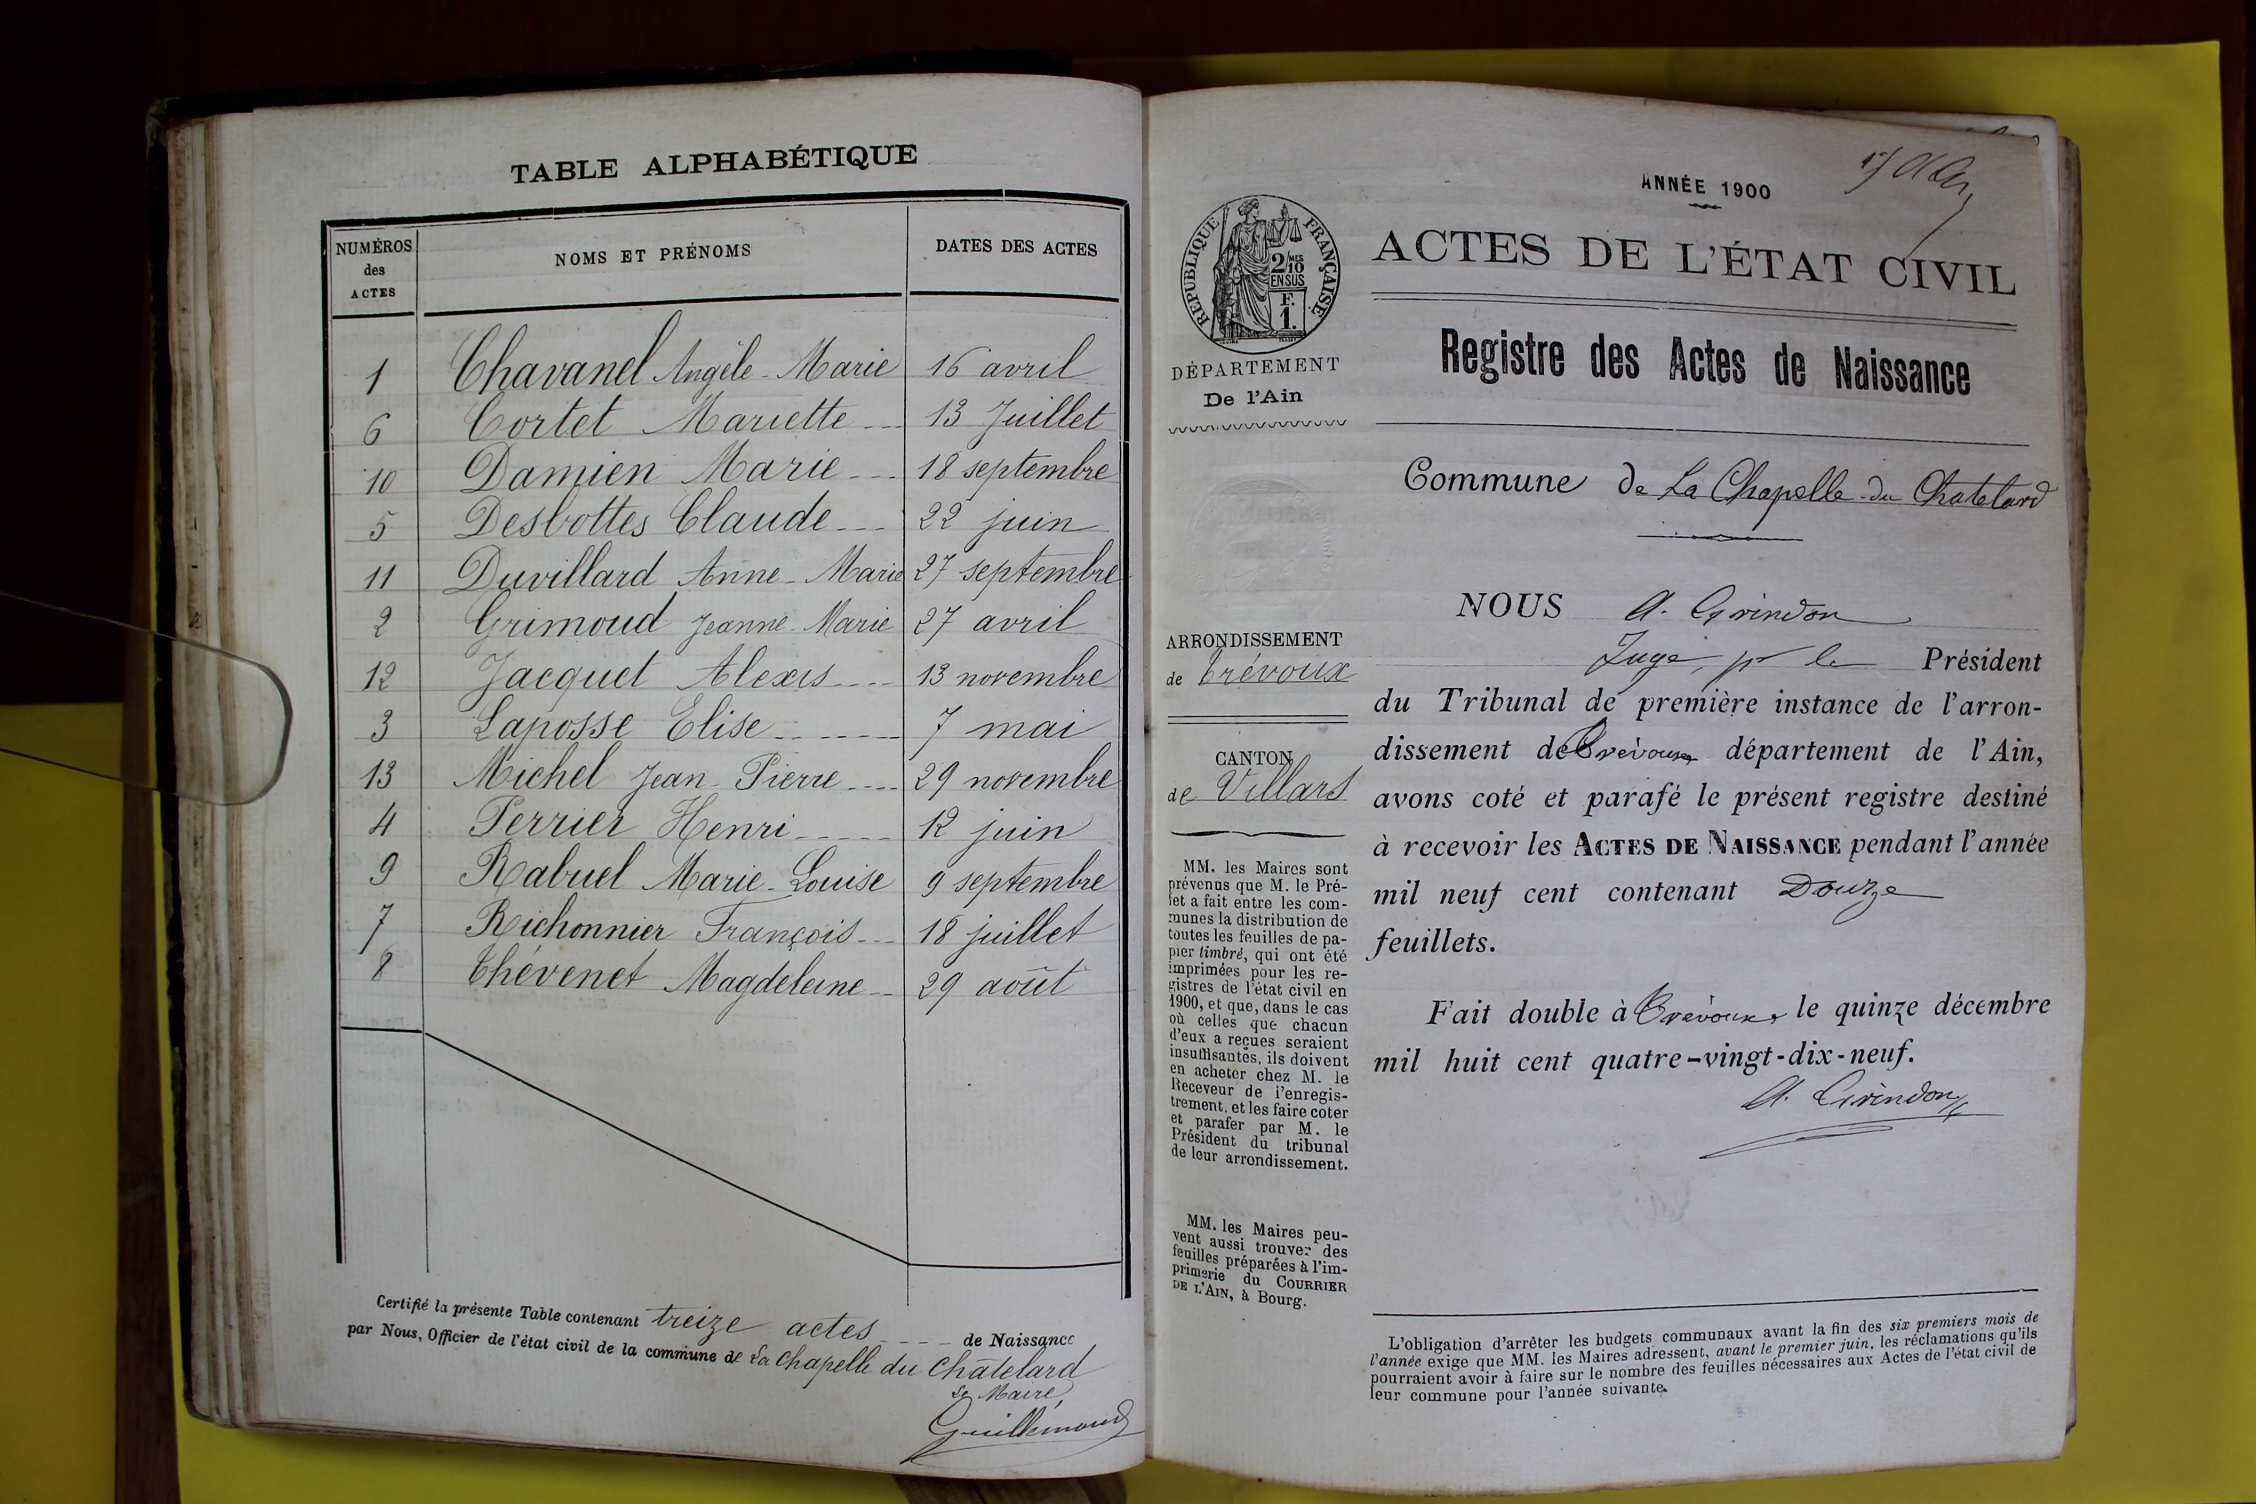 TABLE ALPHABÉTIQUE
NUMÉROS des ACTES | NOMS ET PRÉNOMS | DATES DES ACTES
1 Chavanel Angèle-Marie 16 avril
6 Cortet Mariette 13 Juillet
10 Damien Marie 18 septembre
5 Desbottes Claude 22 juin
11 Duvillard Anne-Marie 27 septembre
2 Grimoud Jeanne-Marie 27 avril
12 Jacquet Alexis 13 novembre
3 Laposse Elise 7 mai
13 Michel Jean-Pierre 29 novembre
4 Perrier Henri 12 juin
9 Rabuel Marie-Louise 9 septembre
7 Richonnier François 18 juillet
8 Thévenet Magdeleine 29 août
Certifié la présente Table contenant treize actes de Naissance
par Nous, Officier de l'état civil de la commune de La Chapelle du Châtelard
Le Maire,
Guillemaud
ANNÉE 1900
RÉPUBLIQUE FRANÇAISE
2/10 MES
EN SUS
F.
1.
DÉPARTEMENT
De l'Ain
ARRONDISSEMENT
de Trévoux
CANTON
de Villars
MM. les Maires sont
prévenus que M. le Pré-
fet a fait entre les com-
munes la distribution de
toutes les feuilles de pa-
pier timbré, qui ont été
imprimées pour les re-
gistres de l'état civil en
1900, et que, dans le cas
où celles que chacun
d'eux a reçues seraient
insuffisantes, ils doivent
en acheter chez M. le
Receveur de l'enregis-
trement, et les faire coter
et parafer par M. le
Président du tribunal
de leur arrondissement.
MM. les Maires peu-
vent aussi trouver des
feuilles préparées à l'im-
primerie du COURRIER
DE L'AIN, à Bourg.
ACTES DE L'ÉTAT CIVIL
Registre des Actes de Naissance
Commune de La Chapelle-du Chatelard
NOUS A. Grindon
Juge, pr le Président
du Tribunal de première instance de l'arron-
dissement de Trévoux département de l'Ain,
avons coté et parafé le présent registre destiné
à recevoir les ACTES DE NAISSANCE pendant l'année
mil neuf cent contenant Douze
feuillets.
Fait double à Trévoux, le quinze décembre
mil huit cent quatre-vingt-dix-neuf.
A. Grindon
L'obligation d'arrêter les budgets communaux avant la fin des six premiers mois de
l'année exige que MM. les Maires adressent, avant le premier juin, les réclamations qu'ils
pourraient avoir à faire sur le nombre des feuilles nécessaires aux Actes de l'état civil de
leur commune pour l'année suivante.